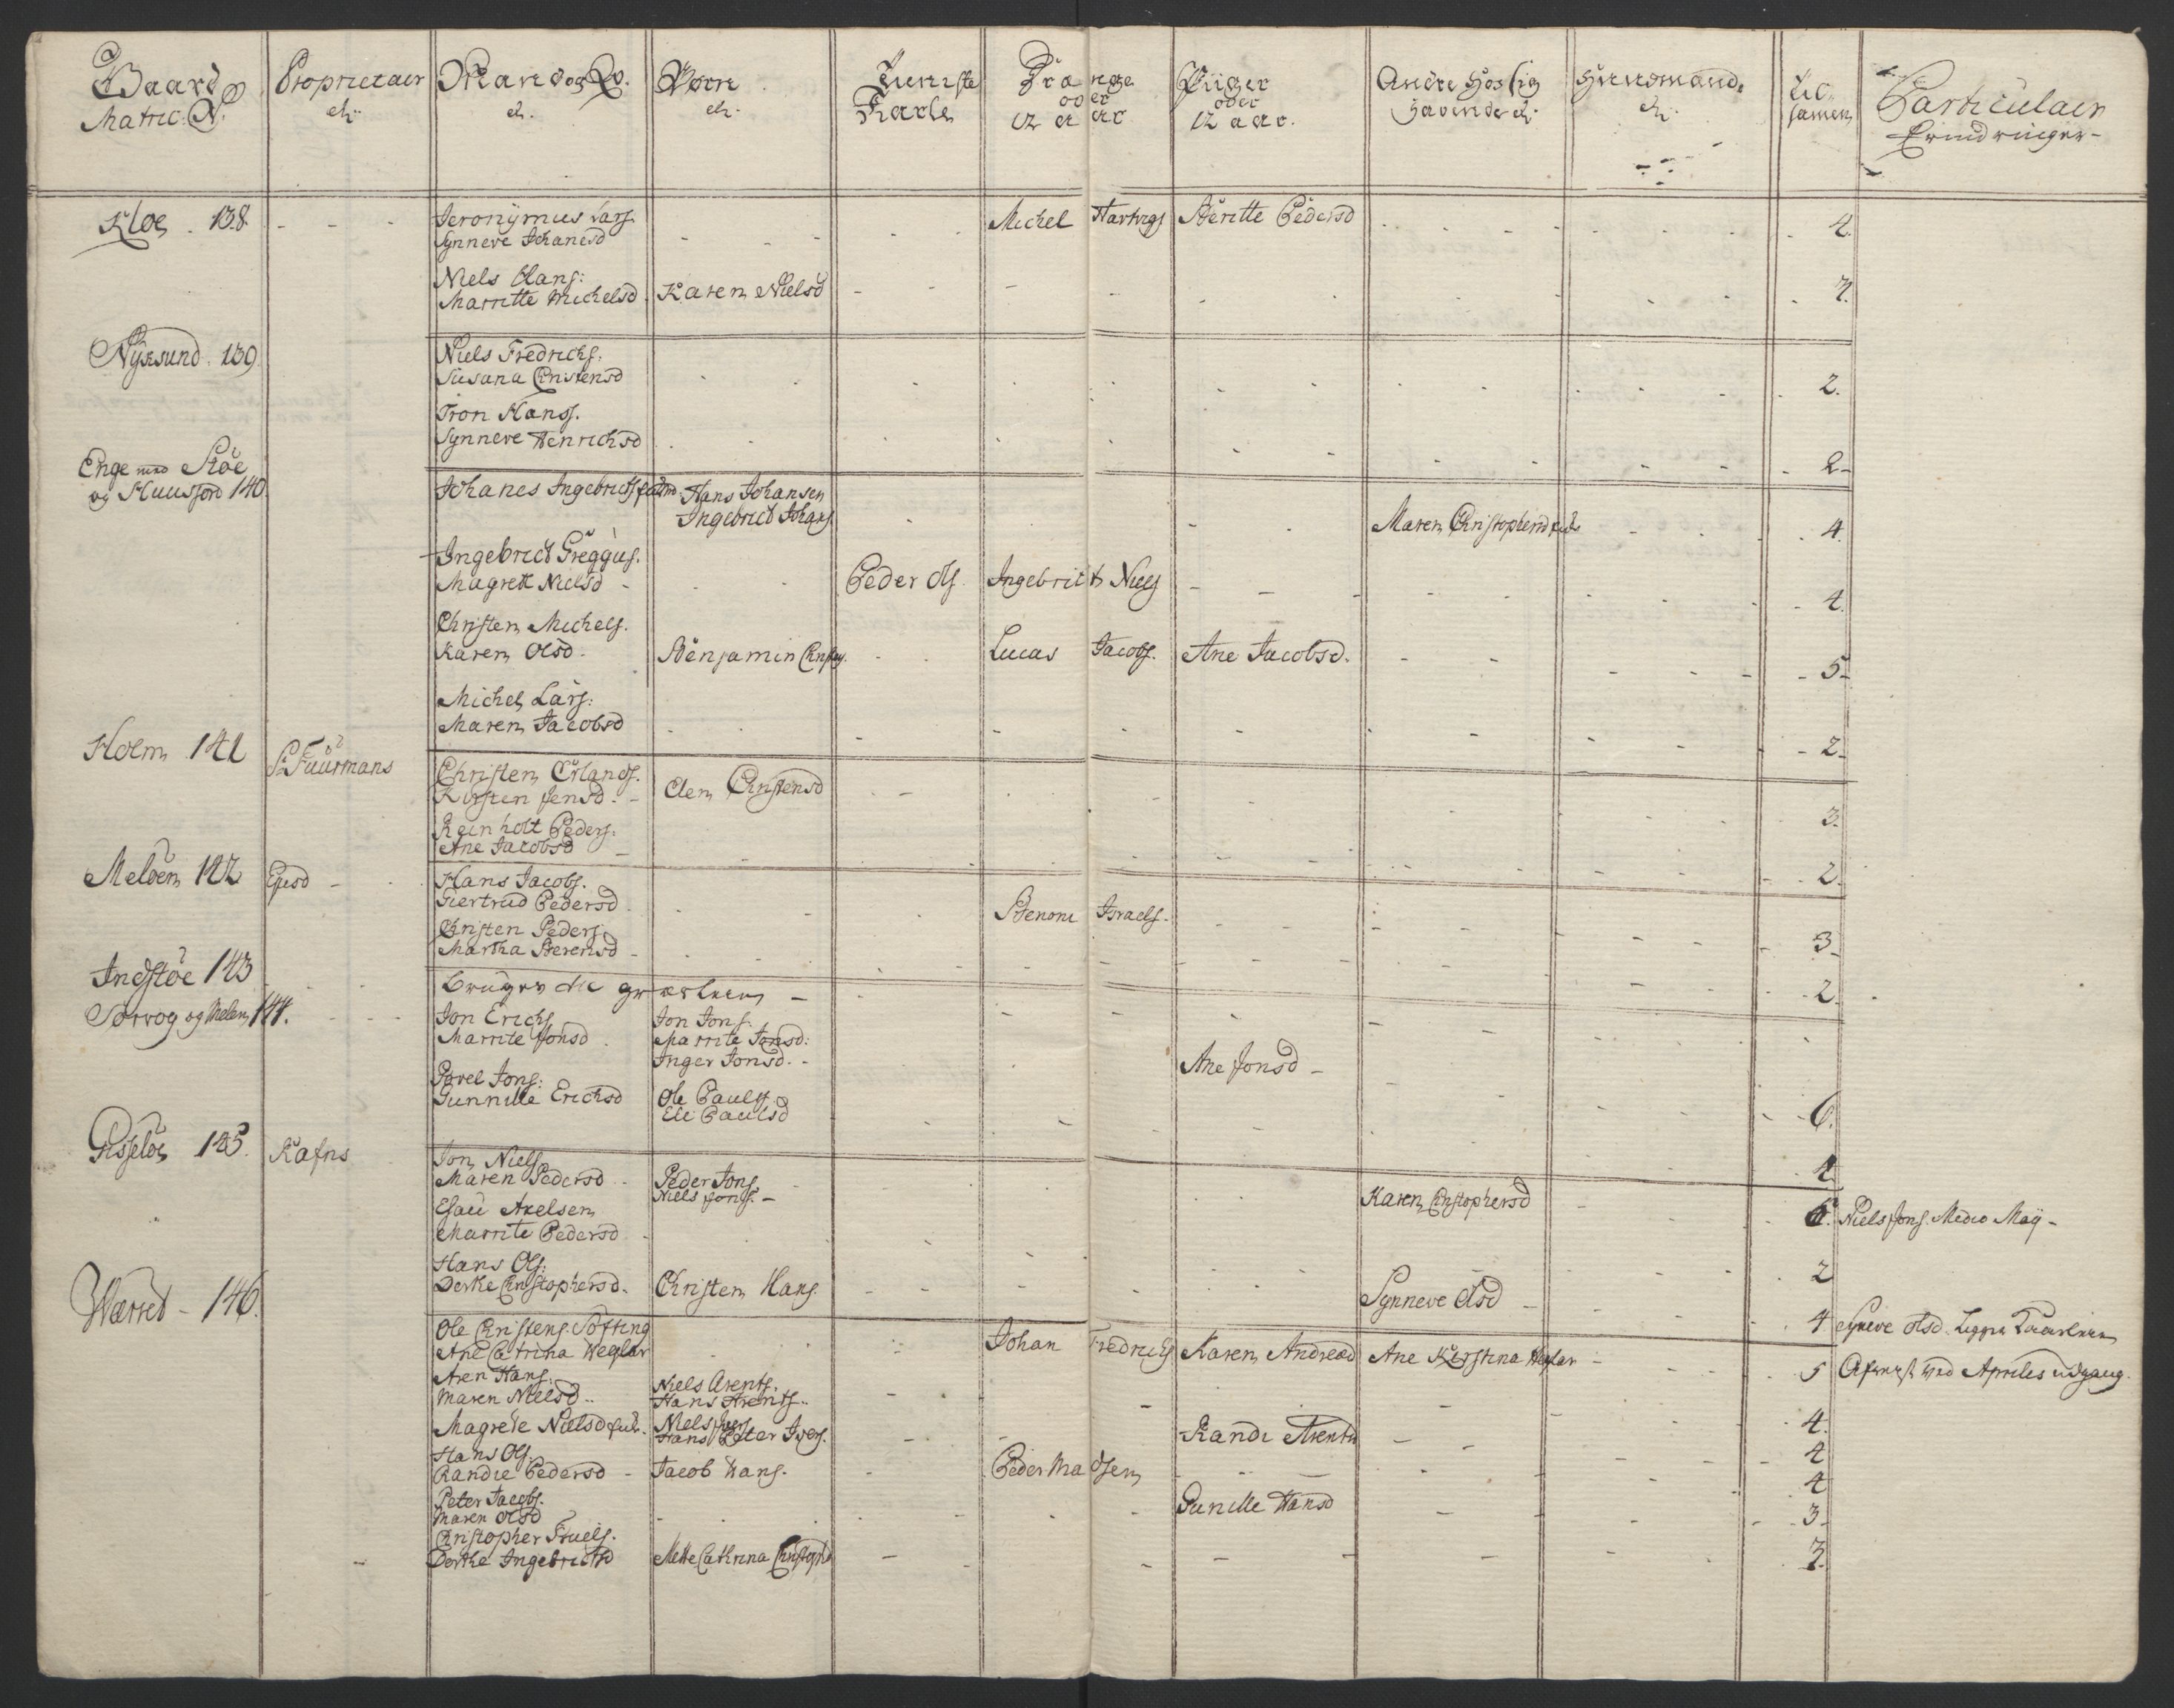 Gaard
Matric. N.
Proprietair
Mand og Qv.
Børn
Tieniste
Karle
Drenge
over
12 aar
Piiger
over
12 aar.
Andre hos sig
havende
Huusmænd
Til
samen
Particulair
Erindringer
Kloe . 138.
Jeronÿmus Lars.
Sÿnneve Johanesd
Michel Hartvigs
Berette Pedersd
4.
Niels Hans:
Marritte Michelsd
Karen Nielsd
3.
Nÿxsund . 139
Niels Fredrichs.
Susana Christensd
2.
Tron Hanss.
Synneve Henrichsd
2
Enge med Støe
og Skuusfiord 140.
Johanes Ingebrichts
Hans Johansen
Ingebricht Johans
Maren Christophersd
4.
Ingebricht Greggus.
Magrett Nielsd
Peder Ols.
Ingebricht Niels
4.
Christen Michels.
Karen Olsd.
Benjamin Christens.
Lucas Jacobs.
Ane Jacobsd.
5
Michel Lars:
Maren Jacobsd
2
Holm 141
Christen Erlands.
Kirsten Jensd.
Elen Christensd
3.
Reinholt Peders.
Ane Jacobsd
2.
Meløen 142
Ejusd
Hans Jacobs.
Giertrud Pedersd
Benoni Israels.
3
Christen Peders.
Martha Berensd
2
Indstøe 143
Sørvog og Melen 144.
Jon Erichs
Marrite Jonsd
Jon Jons.
Marrite Jonsd:
Inger Jonsd.
Ane Jonsd
6.
Povel Jons:
Gunnille Erichsd
Ole Pauls.
Eli Paulsd
4
Gisløe 145.
Jon Niels
Maren Pedersd
Peder Jons.
Niels Jons.
Karen Christophersd
5. Niels Jons. Medio Maÿ
Esau Axelsen
Marrite Pedersd
2
Hans Ols:
Dorthe Christophersd.
Christen Hans
Synneve Olsd
4 Syneve Olsd. Ligger
146.
Ole Christens Søfting
Ane Catrina Weglar
Johan Fredrichs
Karen Andreasd
Ane Kirstina Weglar
5 Afreist ved Apriles udgang.
Aren Hans:
Maren Nielsd
Niels Arents.
Hans Arents.
4.
Magrete Nielsd
Niels Ivers
Hans Peter Ivers.
Randi Arentsd
4
Hans Ols.
Randie Pedersd
Jacob Hans.
Peder Madsen
4
Peter Jacobs.
Maren Olsd
Gunille Hansd
3
Christopher Truels.
Dorthe Ingebrichtsd
Mette Cathrina Christophd
3.